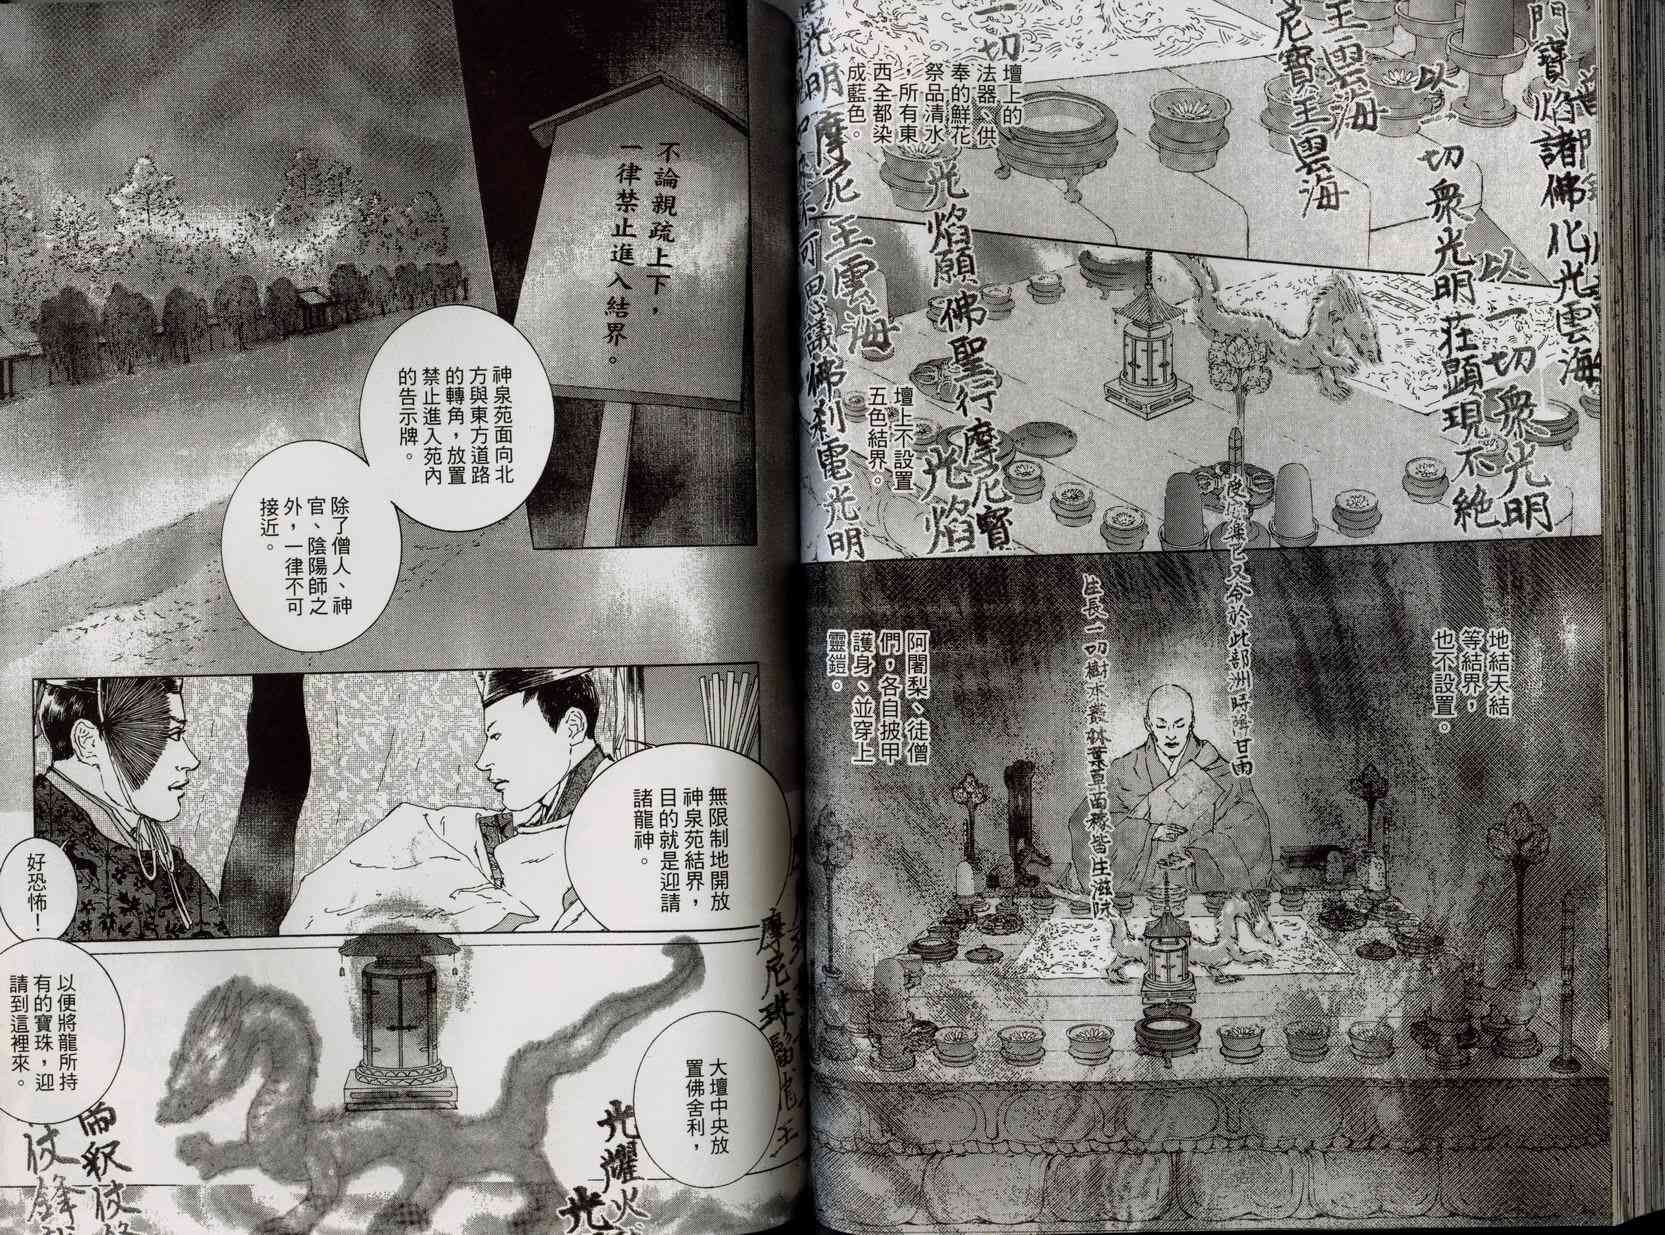 壇上的
法器、供
奉的鮮花
祭品清水
，所有東
西全都染
成藍色。
壇上不設置
五色結界。
地結天結
等結界，
也不設置。
阿闍梨、徒僧
們，各自披甲
護身、並穿上
靈鎧。
門寶焰諸佛化光雲海
以一切眾光明
以一切眾光明莊顯現不絕
王雲海
尼寶王雲海
一切
光焰願佛聖行摩尼寶
光焰
光明摩尼王雲海
不可思議佛剎電光明
又令於此部洲時降甘雨
生長一切樹木叢林葉草苗稼皆生滋阮
不論親疏上下，
一律禁止進入結界。
神泉苑面向北
方與東方道路
的轉角，放置
禁止進入苑內
的告示牌。
除了僧人、神
官、陰陽師之
外，一律不可
接近。
無限制地開放
神泉苑結界，
目的就是迎請
諸龍神。
好恐怖！
大壇中央放
置佛舍利，
以便將龍所持
有的寶珠，迎
請到這裡來。
摩尼珠髻
王
光耀火
光
釈仗
仗鋒